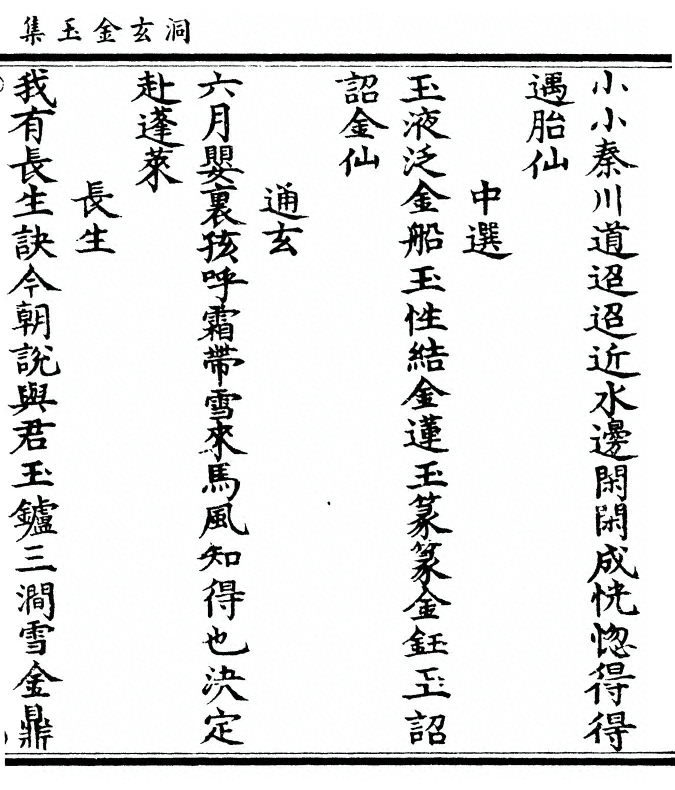 洞玄金玉集
小小秦川道迢迢近水邊閑閑成恍惚得得
遇胎仙
中選
玉液泛金船玉性結金蓮玉篆篆金鈺玉詔
詔金仙
通玄
六月嬰裏孩呼霜帶雪來馬風知得也決定
赴蓬萊
長生
我有長生訣今朝說與君玉鑪三澗雪金鼎